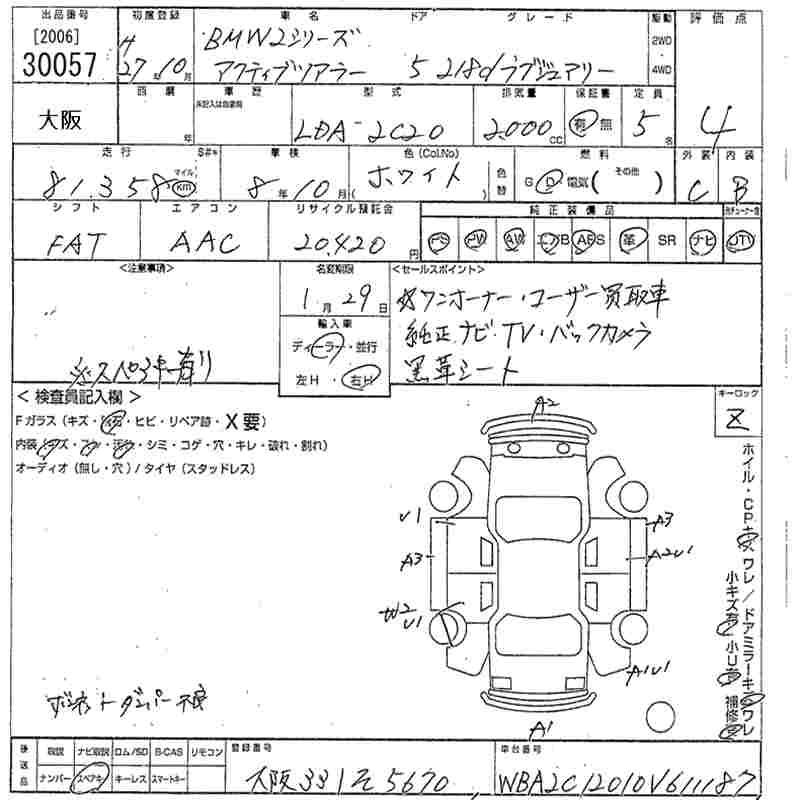 出品番号 初度登録 車名 ドア グレード 駆動 評価点
[2006] H BMW2シリーズ 2WD
30057 27年10月 アクティブツアラー 5 218dラグジュアリー ・4WD
大阪 車歴 型式 排気量 保証書 定員
未記入は自家用
年 LDA-2C20 2000cc 有 無 5名 4
走行 S#* 車検 色(Col.No) 燃料 外装 内装
81,358 マイル km 8年10月 ホワイト 色替 G D 電気 (その他) C B
シフト エアコン リサイクル預託金 純正装備品
FAT AAC 20,420円 PS PW AW エアB ABS 革 SR ナビ (TV)
<注意事項> 名変期限 <セールスポイント>
1月29日 ☆ワンオーナー・ユーザー買取車
輸入車 純正ナビ・TV・バックカメラ
ディーラー・並行 黒革シート
※スペアキー有り 左H・右H
<検査員記入欄> キーロック
Fガラス(キズ・飛石・ヒビ・リペア跡・X要) Z
内装(キズ・スレ・汚れ・シミ・コゲ・穴・キレ・破れ・割れ)
オーディオ(無し・穴)/タイヤ(スタッドレス)
A2
U1 A3
A3 A2U1
W2
U1
A1U1
A1
ホイル・CPキズ ワレ/ドアミラーキズワレ
小キズ有 小U有 補修跡
ボンネットダンパー不良
後送品 取説 ナビ取説 ロム/SD B-CAS リモコン 登録番号 車台番号
ナンバー スペアキー キーレス スマートキー 大阪331そ5670 WBA2C12010V611187